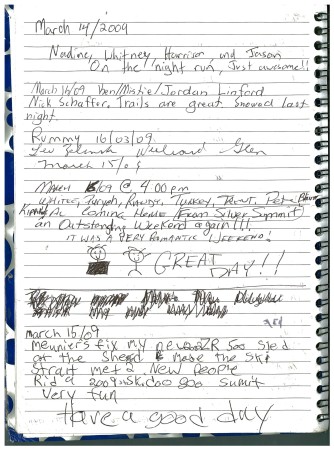 March 14/2009
Nadine, Whitney, Harrison and Jason
On the night run, Just awesome!!
March 16/09 Ben/Mistie/Jordan Linford
Nick Schaffer, Trails are great snowed last
night.
Rummy 16/03/09.
Glen
March 15/09
March 15/09 @ 4:00 pm
Turkey, Trout, Pete
Kimmy AL Coming Home (From Silver Summit)
an Outstanding Weekend again!!!
IT WAS A VERY ROMANTIC WEEKEND!
GREAT
DAY!!
march 15/09
meuniers fix my new ZR 500 sled
at the Shead & made the Ski
strait met 2 New People
Rid a 2009 Skidoo 800 Sumit
Very fun
Have a good day